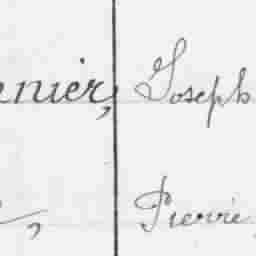 nier, Joseph
, Pierre